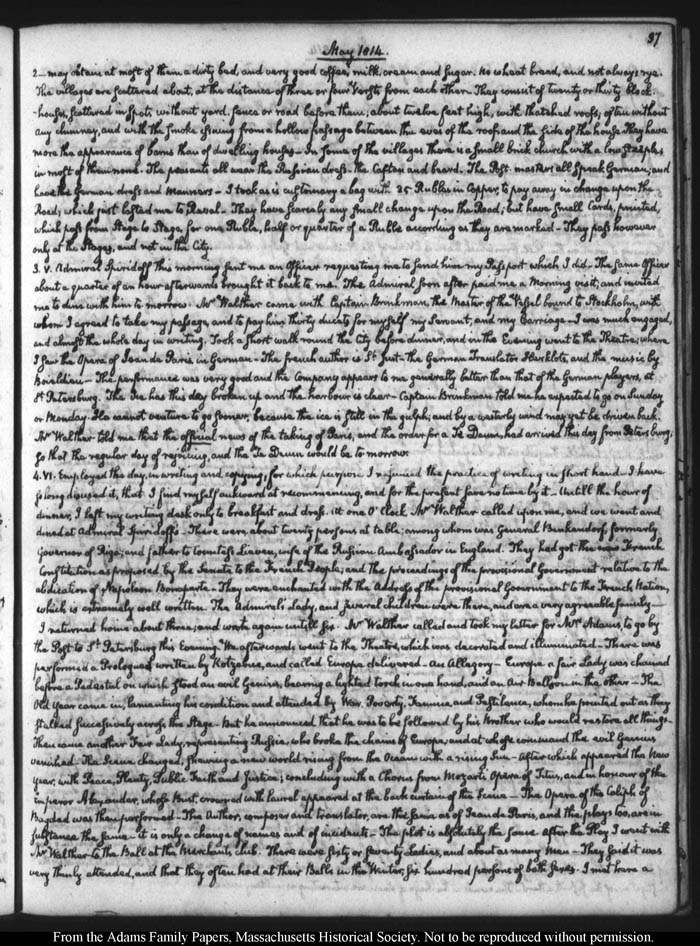 37
May 1814.
2— may obtain at most of them a dirty bed, and very good coffee, milk, cream and sugar. No wheat bread, and not always rye.
The villages are scattered about, at the distance of three or four Versts from each other. They consist of twenty or thirty block-
houses, scattered in spots without yard, fence or road before them; about twelve feet high, with thatched roofs; often without
any chimney, and with the smoke issuing from a hollow passage between the eves of the roof and the side of the house. They have
more the appearance of barns than of dwelling houses— In some of the villages there is a small brick church with a low steeple;
in most of them none. The peasants all wear the Russian dress. the Caftan and beard. The Post-masters all speak German, and
have the German dress and manners— I took as is customary a bag with 25 Rubles in Copper, to pay away in change upon the
Road; which just lasted me to Reval— They have scarcely any small change upon the Road; but have small Cards, printed,
which pass from Stage to Stage, for one Ruble, half or quarter of a Ruble according as they are marked— They pass however
only at the Stages, and not in the City.
3. V. Admiral Spiridoff this morning sent me an Officer requesting me to send him my Passport which I did— The same Officer
about a quarter of an hour afterwards brought it back to me. The Admiral soon after paid me a Morning visit, and invited
me to dine with him to morrow. Mr Walther came with Captain Brinkman, the Master of the Vessel bound to Stockholm, with
whom I agreed to take my passage, and to pay him thirty ducats for myself my Servant, and my Carriage— I was much engaged,
and almost the whole day in writing. Took a short walk round the City before dinner, and in the Evening went to the Theatre; where
I saw the Opera of Jean de Paris in German— The french author is St. Just— the German Translator Herklots, and the music by
Boieldieu— The performance was very good and the Company appears to me generally better than that of the German players, at
St. Petersburg. The Ice has this day broken up and the harbour is clear— Captain Brinkman told me he expected to go on Sunday
or Monday. He cannot venture to go sooner, because the ice is still in the gulph, and by a westerly wind may yet be driven back.
Mr Walther told me that the official news of the taking of Paris, and the order for a Te Deum, had arrived this day from Petersburg;
so that the regular day of rejoicing, and the Te Deum would be to morrow.
4. VI. Employed the day, in writing and copying, for which purpose I resumed the practice of writing in short hand. I have
so long disused it, that I find myself awkward at recommencing, and for the present save no time by it— Untill the hour of
dinner, I left my writing desk only to breakfast and dress. At one O'Clock Mr Walther called upon me, and we went and
dined at Admiral Spiridoff's— There were about twenty persons at table; among whom was General Benkendorf, formerly
Governor of Riga; and father to Countess Lieven, wife of the Russian Ambassador in England. They had got the new French
Constitution as proposed by the Senate to the French People; and the proceedings of the provisional Government relative to the
abdication of Napoleon Bonaparte— They were enchanted with the Address of the provisional Government to the French Nation,
which is extremely well written. The Admiral's Lady, and several children were there, and are a very agreeable family—
I returned home about three, and wrote again untill six. Mr Walther called and took my letter for Mrs Adams, to go by
the Post to St. Petersburg this Evening. We afterwards went to the Theatre, which was decorated and illuminated— There was
performed a Prologue, written by Kotzebue, and called Europa delivered— An Allegory— Europa a fair Lady was chained
before a Pedestal on which stood an evil Genius, bearing a lighted torch in one hand, and an Air Balloon in the other— The
Old Year came in, lamenting his condition and attended by War, Poverty, Famine and Pestilence, whom he pointed out as they
stalked successively across the Stage— But he announced that he was to be followed by his Brother who would restore all things—
Then came another Fair Lady, representing Russia, who broke the chains of Europa, and at whose command the evil Genius
vanished. The Scene changed, shewing a new world rising from the Ocean with a rising Sun— after which appeared the New
Year, with Peace, Plenty, Public Faith and Justice; concluding with a Chorus from Mozart's Opera of Titus, and in honour of the
Emperor Alexander, whose Bust, crowned with laurel appeared at the back curtain of the Scene— The Opera of the Caliph of
Bagdad was then performed— The Author, composer and translator, are the same as of Jean de Paris, and the plays too, are in
substance the same— it is only a change of names and of incidents— The plot is absolutely the same. After the Play, I went with
Mr Walther to the Ball at the Merchants club. There were sixty or seventy Ladies, and about as many Men— They said it was
very thinly attended, and that they often had at their Balls in the Winter, six hundred persons of both sexes. I met here a
From the Adams Family Papers, Massachusetts Historical Society. Not to be reproduced without permission.